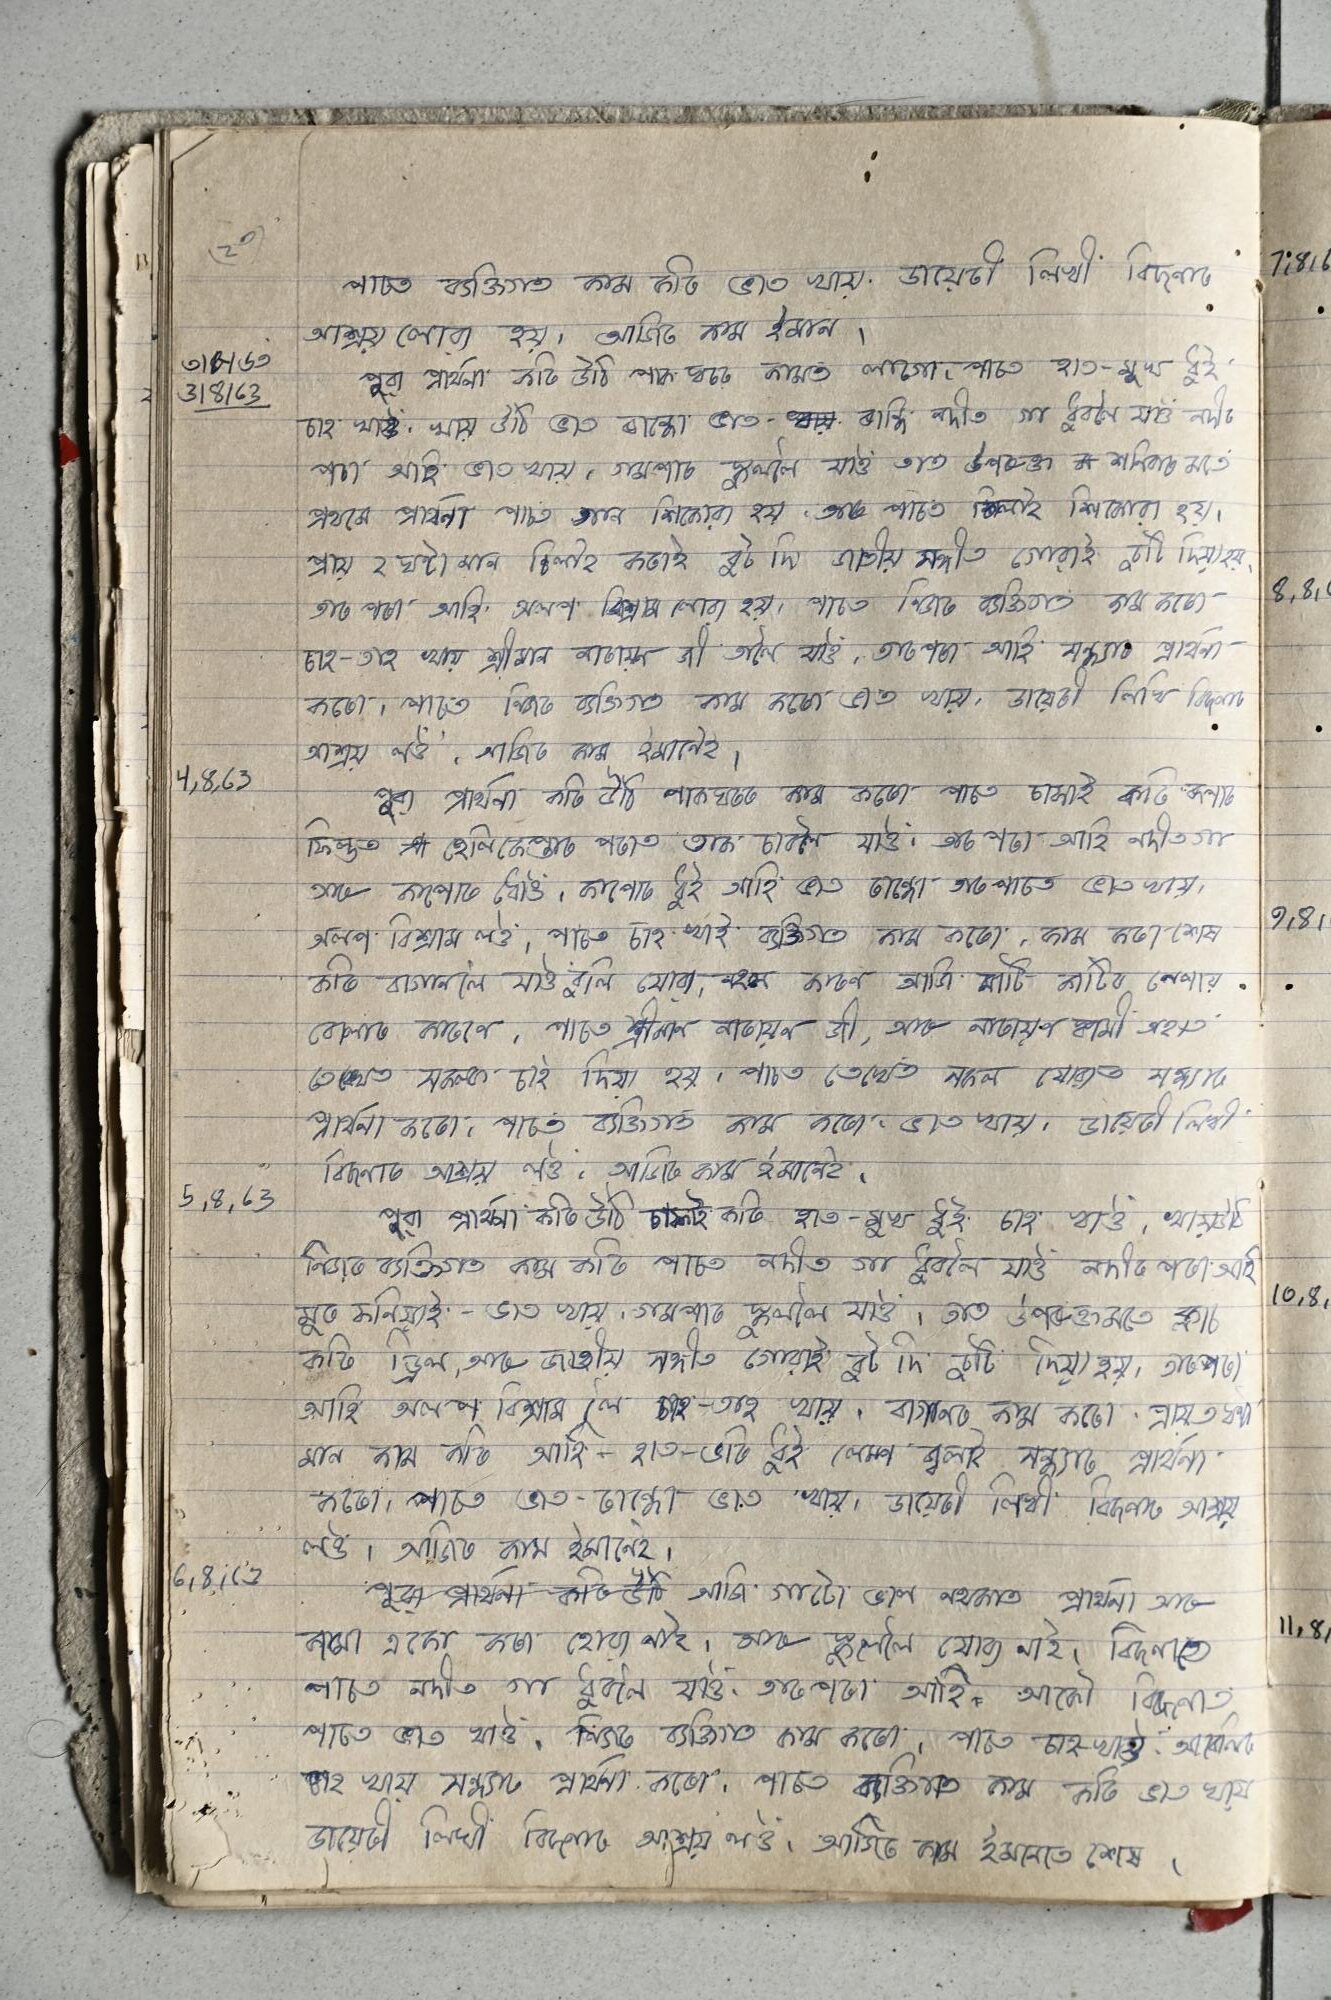 (২০)
পাচত ব্যক্তিগত কাম কৰি ভাত খায়. ডায়েৰী লিখী বিছনাত
আশ্ৰয় লোৱা হয়। আজিৰ কাম ইমান।
৩।৮।৬৩
3/8/63
পুৱা প্ৰাৰ্থনা কৰি উঠি পাকঘৰত কামত লাগো. পাচত হাত-মুখ ধুই
চাহ খাওঁ. খায় উঠি ভাত ৰান্ধো ভাত- ৰান্ধি নদীত গা ধুবলৈ যাওঁ নদীৰ
পৰা আহি ভাত খায়. গমপাত স্কুললৈ যাওঁ তাত উপৰুক্ত শনিবাৰ মতে
প্ৰথমে প্ৰাৰ্থনা পাচত গান শিকোৱা হয়. আৰু পাচত শিকোৱা হয়।
প্ৰায় ২ ঘণ্টা মান কৰাই বুট দি জাতীয় সঙ্গীত গোৱাই চুটি দিয়া হয়.
তাৰ পৰা আহি অলপ বিশ্ৰাম লোৱা হয়. পাচত নিজৰ ব্যক্তিগত কাম কৰো
চাহ-তাহ খায় শ্ৰীমান নাৰায়ন জী তালৈ যাওঁ. তাৰপৰা আহি সন্ধ্যাৰ প্ৰাৰ্থনা
কৰো, পাচত নিজৰ ব্যক্তিগত কাম কৰো ভাত খায়. ডায়েৰী লিখি বিছনাত
আশ্ৰয় লওঁ. আজিৰ কাম ইমানেই।
4,8,63
পুৱা প্ৰাৰ্থনা কৰি উঠি পাকঘৰত কাম কৰো পাচত চাফাই কৰি
ফিল্ডত হেলিকেপ্তাৰ পৰাত তাক চাবলৈ যাওঁ. তাৰ পৰা আহি নদীত গা
আৰু কাপোৰ ধোওঁ. কাপোৰ ধুই আহি ভাত ৰান্ধো তাৰপাচত ভাত খায়.
অলপ বিশ্ৰাম লওঁ, পাচত চাহ খাই ব্যক্তিগত কাম কৰো. কাম কৰা শেষ
কৰি বাগানলৈ যাওঁ বুলি যোৱা, কাৰণ আজি মাটি কাটিব নেপায়
বোলাৰ কাৰণে. পাচত শ্ৰীমান নাৰায়ন জী, আৰু নাৰায়ণ স্বামী অহাত
তেখেত সকলক চাহ দিয়া হয়. পাচত তেখেত সকল যোৱাত সন্ধ্যাৰ
প্ৰাৰ্থনা কৰো. পাচত ব্যক্তিগত কাম কৰো. ভাত খায়. ডায়েৰী লিখী
বিছনাত আশ্ৰয় লওঁ. আজিৰ কাম ইমানেই.
5,8,63
পুৱা প্ৰাৰ্থনা কৰি উঠি চাফাই কৰি হাত-মুখ ধুই চাহ খাওঁ. খায় উঠি
নিজৰ ব্যক্তিগত কাম কৰি পাচত নদীত গা ধুবলৈ যাওঁ নদীৰ পৰা আহি
মুৰ ফনিয়াই - ভাত খায়. গমপাত স্কুললৈ যাওঁ. তাত উপৰুক্তমতে ক্লাচ
কৰি ড্ৰিল, আৰু জাতীয় সঙ্গীত গোৱাই বুট দি চুটি দিয়া হয়, তাৰপৰা
আহি অলপ বিশ্ৰাম লৈ চাহ-তাহ খায়. বাগানত কাম কৰো. প্ৰায় ৩ ঘণ্টা
মান কাম কৰি আহি - হাত-ভৰি ধুই লেম্প জ্বলাই সন্ধ্যাৰ প্ৰাৰ্থনা
কৰো, পাচত ভাত-ৰান্ধো ভাত খায়. ডায়েৰী লিখী বিছনাত আশ্ৰয়
লওঁ, আজিৰ কাম ইমানেই.
6,8,63
পুৱা প্ৰাৰ্থনা কৰি উঠি আজি গাটো ভাল নথকাত প্ৰাৰ্থনা আৰু
কামো একো কৰা হোৱা নাই, আৰু স্কুললৈ যোৱা নাই, বিছনাতে
পাচত নদীত গা ধুবলৈ যাওঁ. তাৰপৰা আহি. আকৌ বিছনাত
পাচত ভাত খাওঁ, নিজৰ ব্যক্তিগত কাম কৰো, পাচত চাহ খাওঁ. আবেলিৰ
চাহ খায় সন্ধ্যাৰ প্ৰাৰ্থনা কৰো, পাচত ব্যক্তিগত কাম কৰি ভাত খায়
ডায়েৰী লিখী বিছনাত আশ্ৰয় লওঁ. আজিৰ কাম ইমানতে শেষ.
7,8,6
8,8,6
9,8,
10,8,
11,8,